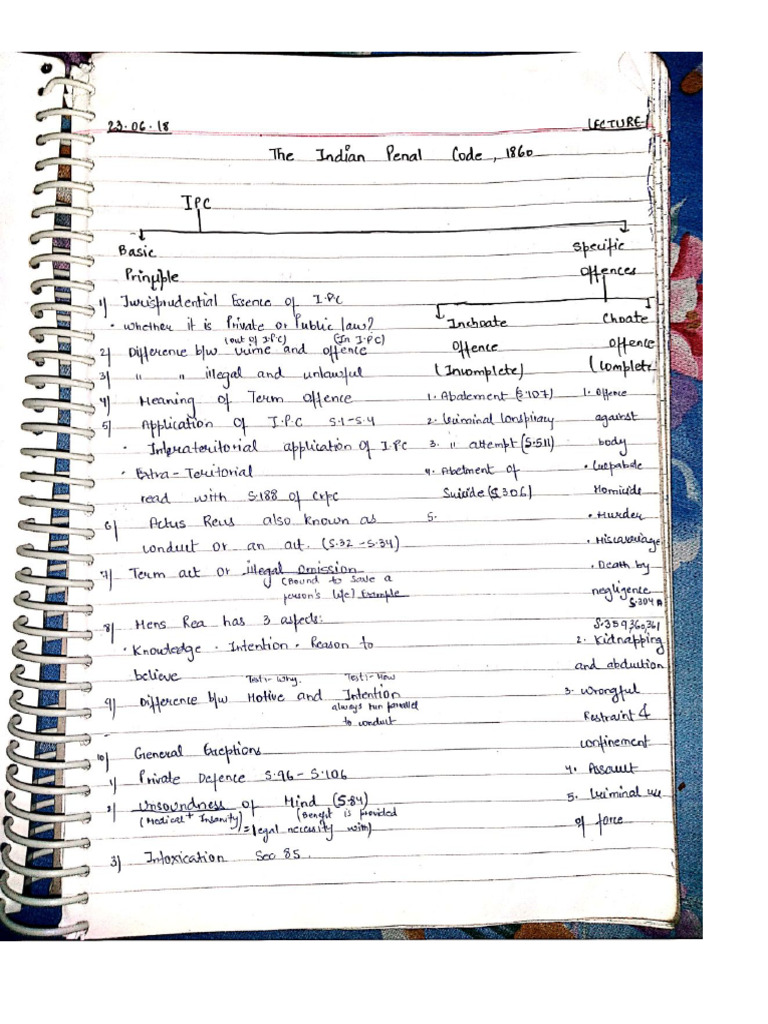 23.06.18
LECTURE-1
The Indian Penal Code, 1860
IPC
Basic
Principle
1) Jurisprudential Essence of I.P.C
• whether it is Private or Public law?
(out of I.P.C) (In I.P.C)
2) Difference b/w crime and offence
3) " " illegal and unlawful
4) Meaning of Term offence
5) Application of I.P.C S.1-S.4
• Intraterritorial application of I.PC
• Extra-Teritorial
read with S.188 of Crpc
6) Actus Reus also known as
conduct or an act. (S.32-S.34)
7) Term act or illegal omission
(Bound to save a
person's life) Example
8) Mens Rea has 3 aspects:
• Knowledge • Intention • Reason to
believe
Test:- Why. Test:- How
9) Difference b/w Motive and Intention
always run parallel
to conduct
10) General Exceptions
1) Private Defence S.96-S.106
2) Unsoundness of Mind (S.84)
(Medical + Insanity) (Benefit is provided
= legal necessity with)
3) Intoxication Sec 85.
Specific
offences
Inchoate
offence
(Incomplete)
1. Abatement (S.107)
2. Criminal Conspiracy
3. " attempt (S.511)
4. Abetment of
Suicide (S.306)
5.
Choate
offence
(Complete
1. Offence
against
body
• Culpable
Homicide
• Murder
• Miscarriage
• Death by
negligence
S.304A
S.359,360,361
2. Kidnapping
and abduction
3. Wrongful
Restraint &
confinement
4. Assault
5. Criminal use
of force